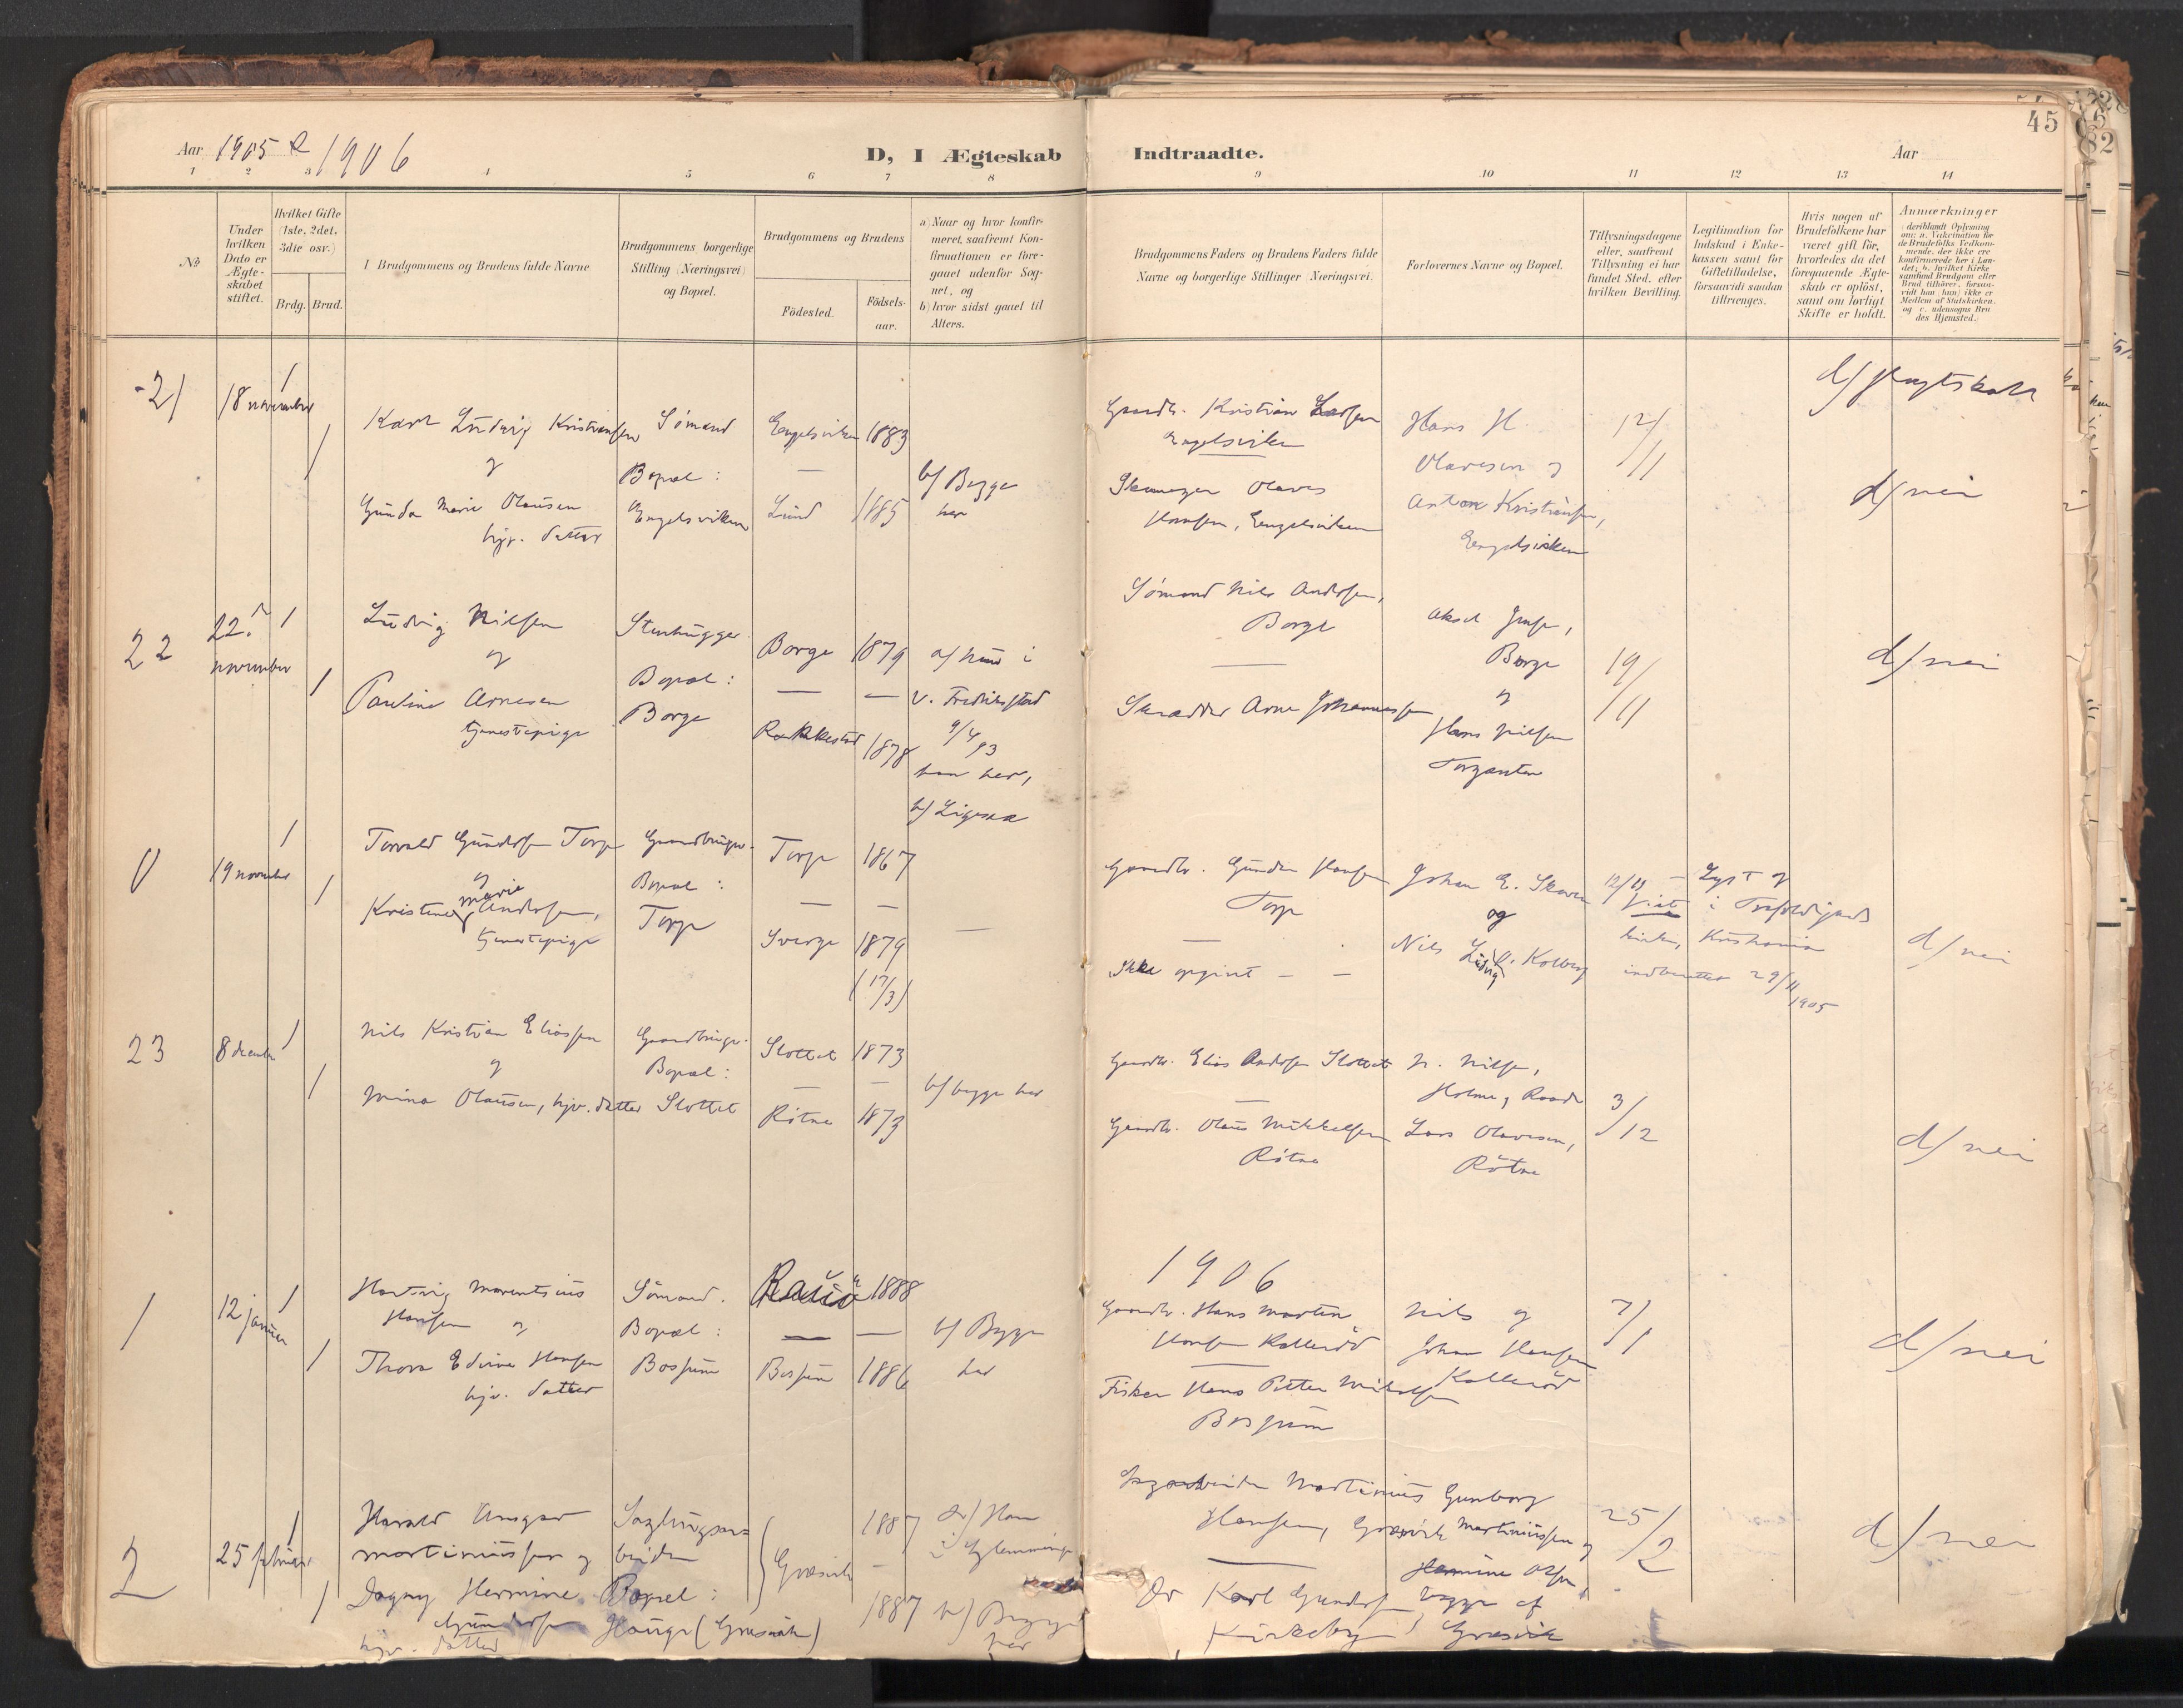 Aar 1905 & 1906
D, I Ægteskab
Indtraadte.
Aar
45
1 2 3 4 5 6 7 8 9 10 11 12 13 14
No
Under hvilken Dato er Ægteskabet stiftet.
Hvilket Gifte (1ste, 2det, 3die osv.)
Brdg. Brud.
I Brudgommens og Brudens fulde Navne
Brudgommens borgerlige Stilling (Næringsvei) og Bopæl.
Brudgommens og Brudens
Födested. Födsels-aar.
a) Naar og hvor konfirmeret, saafremt Konfirmationen er foregaaet udenfor Sognet, og
b) hvor sidst gaaet til Alters.
Brudgommens Faders og Brudens Faders fulde Navne og borgerlige Stillinger (Næringsvei).
Forlovernes Navne og Bopæl.
Tillysningsdagene eller, saafremt Tillysning ei har fundet Sted, efter hvilken Bevilling.
Legitimation for Indskud i Enkekassen samt for Giftetilladelse, forsaavidt saadan tiltrænges.
Hvis nogen af Brudefolkene har været gift för, hvorledes da det foregaaende Ægteskab er oplöst, samt om lovligt Skifte er holdt.
Anmærkninger (deriblandt Oplysning om: a. Vakcination for de Brudefolks Vedkommende, der ikke ere konfirmerede her i Landet; b. hvilket Kirkesamfund Brudgom eller Brud tilhörer, forsaavidt han (hun) ikke er Medlem af Statskirken, og c. udensogns Brudes Hjemsted.)
21
18 november
1
1
Karl Ludvig Kristiansen
og
Gunda Marie Olausen
hjv. datter
Sömand
Bopæl:
Engelsviken
Engelsviken 1883
—
Lund 1885
b/ Begge
her
Gaardb. Kristian Larsen
Engelsviken
Skomager Olaves
Hansen, Engelsviken
Hans H.
Olavesen og
Anton Kristiansen,
Engelsviken
12/11
d/ nei
22
22.
november
1
1
Ludvig Nilsen
og
Pauline Arnesen
tjenestepige
Stenhugger
Bopæl:
Borge
Borge 1879
— —
Rakkestad 1878
a/ hun i
V. Fredrikstad
9/4 93
han her,
b/ Ligesaa
Sömand Nils Andersen,
Borge
—
Skrædder Arne Johannessen
Aksel
Borge
og
Hans Nilsen
19/11
d/ nei
0
19 november
1
1
Torvald Gundersen Torp
og
Kristine Marie Andersen,
tjenestepige
Gaardbruger.
Bopæl:
Torp
Torp 1867
— —
Sverge 1879
(17/3)
—
Gaardb. Gunder Hansen
Torp
—
Ikke opgivet — —
Johan E. Skaven
og
Nils Ludvig K. Kolberg
12/11 — Lyst og
Viet i Trefoldigheds
kirken, Kristiania
indberettet 29/11
1905
d/ nei
23
8 december
1
1
Nils Kristian Eliassen
og
Mina Olausen, hjv. datter
Gaardbruger.
Bopæl:
Slottet
Slottet 1873
— —
Rötne 1873
b/ begge her
Gaardb. Elias Andersen Slottet
—
Gaardb. Olaus Mikkelsen
Rötne
N. Nilsen,
Holme, Raade
Lars Olavesen,
Rötne
3/12
d/ nei
1906
1
12 januar
1
1
Hartvig Marentsius
Hansen og
Thora Edvine Hansen
hjv. datter
Sömand.
Bopæl:
Bossum
Rauö 1888
— —
Bossum 1886
b/ Begge
her
Gaardb. Hans Martin
Hansen Kalleröd
—
Fisker Hans Petter Mikalsen
Bossum
Nils og
Johan Hansen
Kalleröd
7/1
d/ nei
2
25 februar
1
1
Harald Ansgar
Martiniussen og
Dagny Hermine
Gundersen
hjv. datter
Sagbrugsar-
beider
Bopæl:
Hauge (Græsvik)
Græsvik
1887
—
1887
a/ Han
i Glemminge
b/ Begge
her
Sagarbeider Martinius
Hansen, Græsvik
—
Do Karl Gundersen
Kirkeby
Gunborg
Martiniussen og
Hermine Olsen,
begge af
Græsvik
25/2
d/ nei